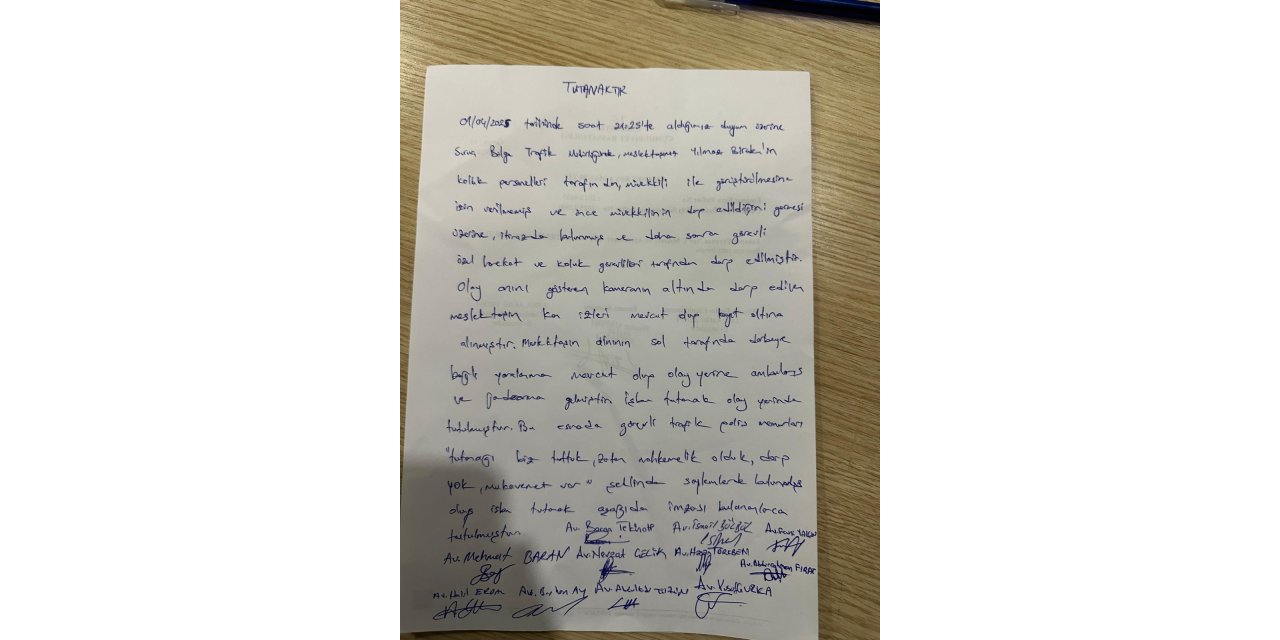 TUTANAKTIR
01/04/2025 tarihinde saat 21:25'te aldığımız duyum üzerine
Suruç Bölge Trafik Müdürlüğünde, meslektaşımız Yılmaz 'in
kolluk personelleri tarafından, müvekkili ile görüştürülmesine
izin verilmemiş ve önce müvekkilinin darp edildiğini görmesi
üzerine, itirazda bulunmuş ve daha sonra görevli
özel harekat ve kolluk görevlileri tarafından darp edilmiştir.
Olay anını gösteren kameranın altında darp edilen
meslektaşın kan izleri mevcut olup kayıt altına
alınmıştır. Meslektaşın alnının sol tarafında darbeye
bağlı yaralanma mevcut olup olay yerine ambulans
ve jandarma gelmiştir. İşbu tutanak olay yerinde
tutulmuştur. Bu esnada görevli trafik polis memurları
"tutanağı biz tuttuk, zaten mahkemelik olduk, darp
yok, mukavemet var" şeklinde söylemlerde bulunmuş
olup işbu tutanak aşağıda imzası bulananlarca
tutulmuştur.
Av. Baran Av. İsmail Av.
Av. Mehmet BARAN Av. Nevzat ÇELİK Av. TÖREBEN
Av. FIRAT
Av. Halil Av. Ay Av. Av. Yusuf